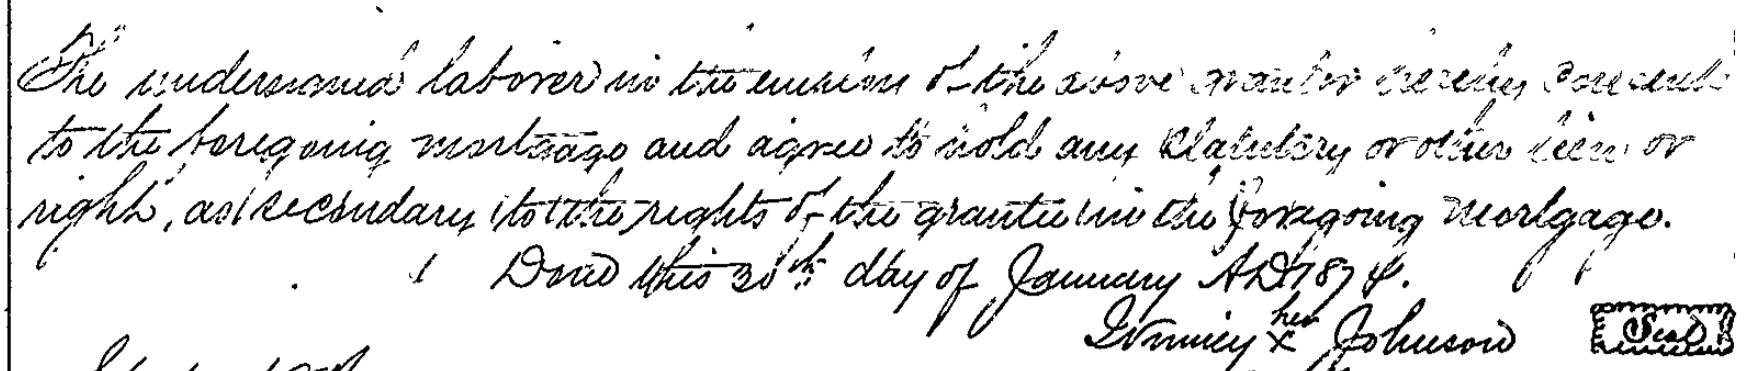 The undersigned laborer in the employ of the above grantor hereby consents
to the foregoing mortgage and agree to hold any statutory or other lien or
right, as secondary to the rights of the grantee in the foregoing mortgage.
Done this 30th day of January AD 1874.
her
x Johnson Seal